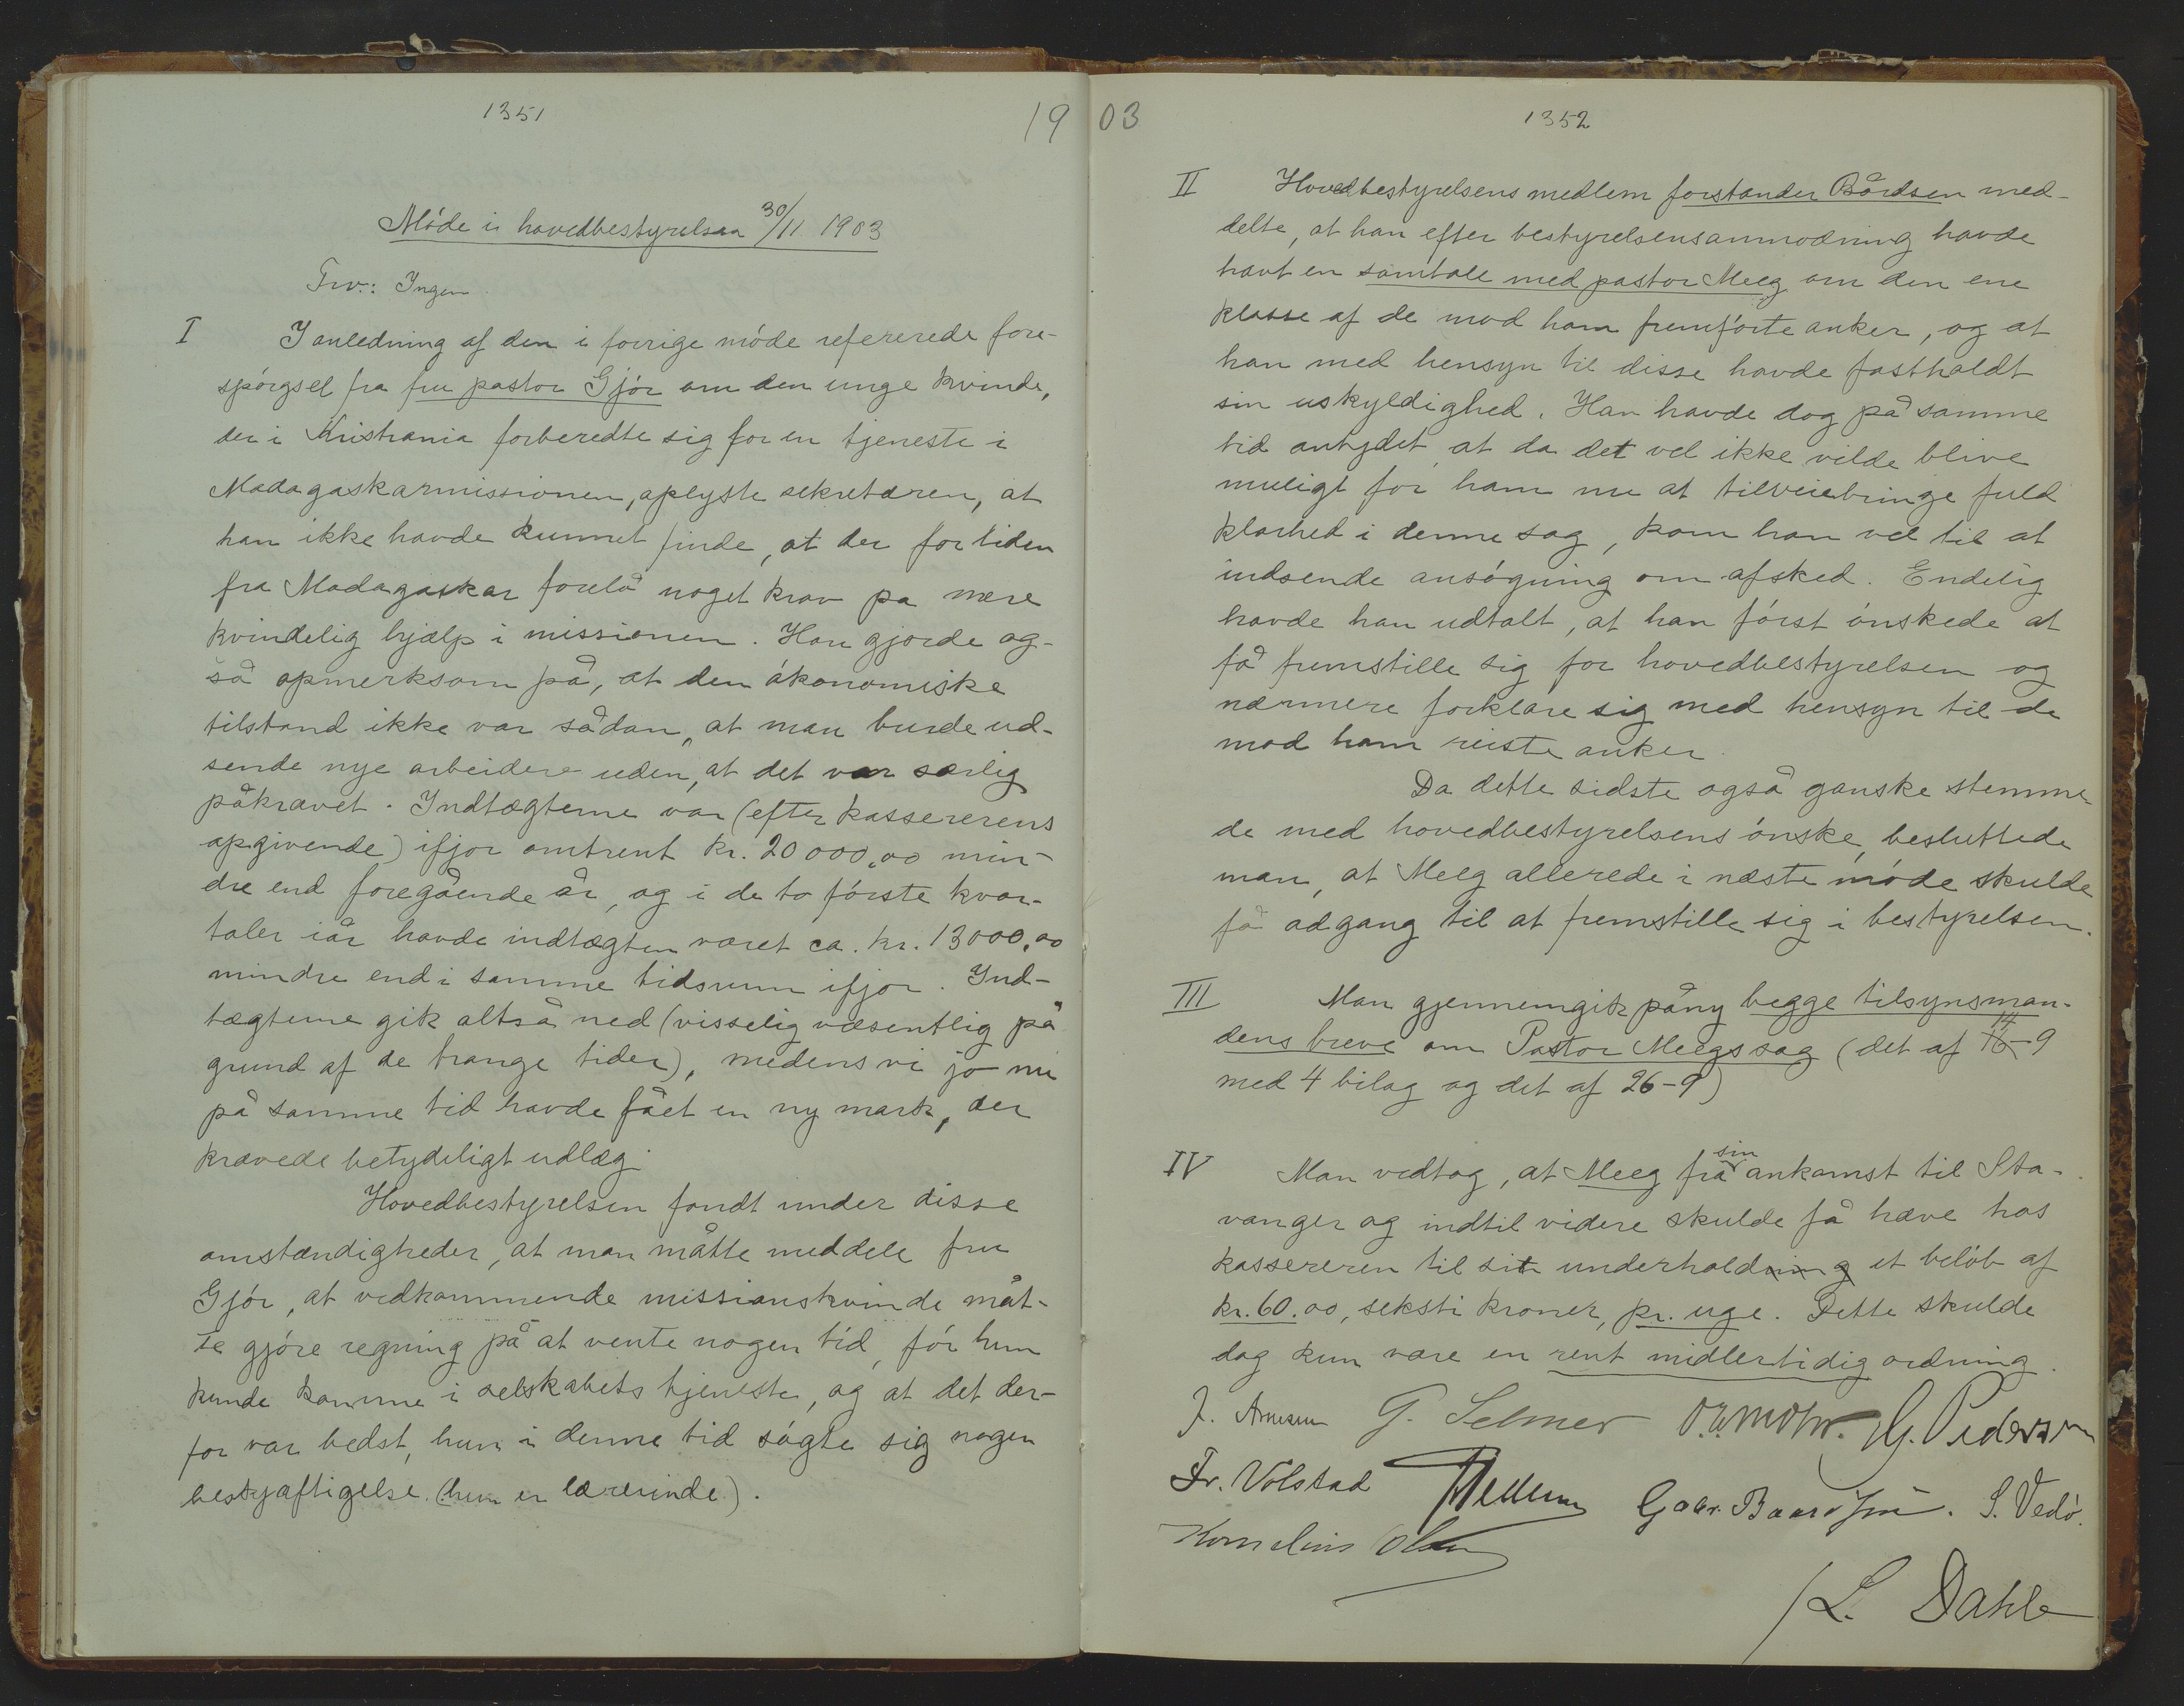 1351
1903
Møde i hovedbestyrelsen 30/11 1903
Frv.: Ingen
I I anledning af den i forrige møde refererede fore-
spørgsel fra fru pastor Gjør om den unge kvinde,
der i Kristiania forberedte sig for en tjeneste i
Madagaskarmissionen, oplyste sekretæren, at
han ikke havde kunnet finde, at der for tiden
fra Madagaskar forelå noget krav på mere
kvindelig hjælp i missionen. Han gjorde og-
så opmerksom på, at den økonomiske
tilstand ikke var sådan, at man burde ud-
sende nye arbeidere uden, at det var særlig
påkrævet. Indtægterne var (efter kassererens
opgivende) ifjor omtrent kr. 20000,00 min-
dre end foregående år, og i de to første kvar-
taler iår havde indtægten været ca. kr. 13000,00
mindre end i samme tidsrum ifjor. Ind-
tægterne gik altså ned (visselig væsentlig på
grund af de trange tider), medens vi jo nu
på samme tid havde fået en ny mark, der
krævede betydeligt udlæg.
Hovedbestyrelsen fandt under disse
omstændigheder, at man måtte meddele fru
Gjør, at vedkommende missionskvinde måt-
te gjøre regning på at vente nogen tid, før hun
kunde komme i selskabets tjeneste, og at det der-
for var bedst, hun i denne tid søgte sig nogen
beskjæftigelse. (hun er lærerinde).
1352
II Hovedbestyrelsens medlem forstander Bårdsen med-
delte, at han efter bestyrelsens anmodning havde
havt en samtale med pastor Meeg om den ene
klasse af de mod ham fremførte anker, og at
han med hensyn til disse havde fastholdt
sin uskyldighed. Han havde dog på samme
tid antydet, at da det vel ikke vilde blive
muligt for ham nu at tilveiebringe fuld
klarhed i denne sag, kom han vel til at
indsende ansøgning om afsked. Endelig
havde han udtalt, at han først ønskede at
få fremstille sig for hovedbestyrelsen og
nærmere forklare sig med hensyn til de
mod ham reiste anker.
Da dette sidste også ganske stemme-
de med hovedbestyrelsens ønske, besluttede
man, at Meeg allerede i næste møde skulde
få adgang til at fremstille sig i bestyrelsen.
III Man gjennemgik påny begge tilsynsman-
dens breve om Pastor Meegs sag (det af 14-9
med 4 bilag og det af 26-9)
IV Man vedtog, at Meeg fra sin ankomst til Sta-
vanger og indtil videre skulde få hæve hos
kassereren til sit underhold et beløb af
kr. 60.00, seksti kroner, pr. uge. Dette skulde
dog kun være en rent midlertidig ordning.
J. Arnesen G. Selmer G. Pedersen
Fr. Volstad Gabr. Baardsen. S. Vedø.
Kornelius Olsen
L. Dahle